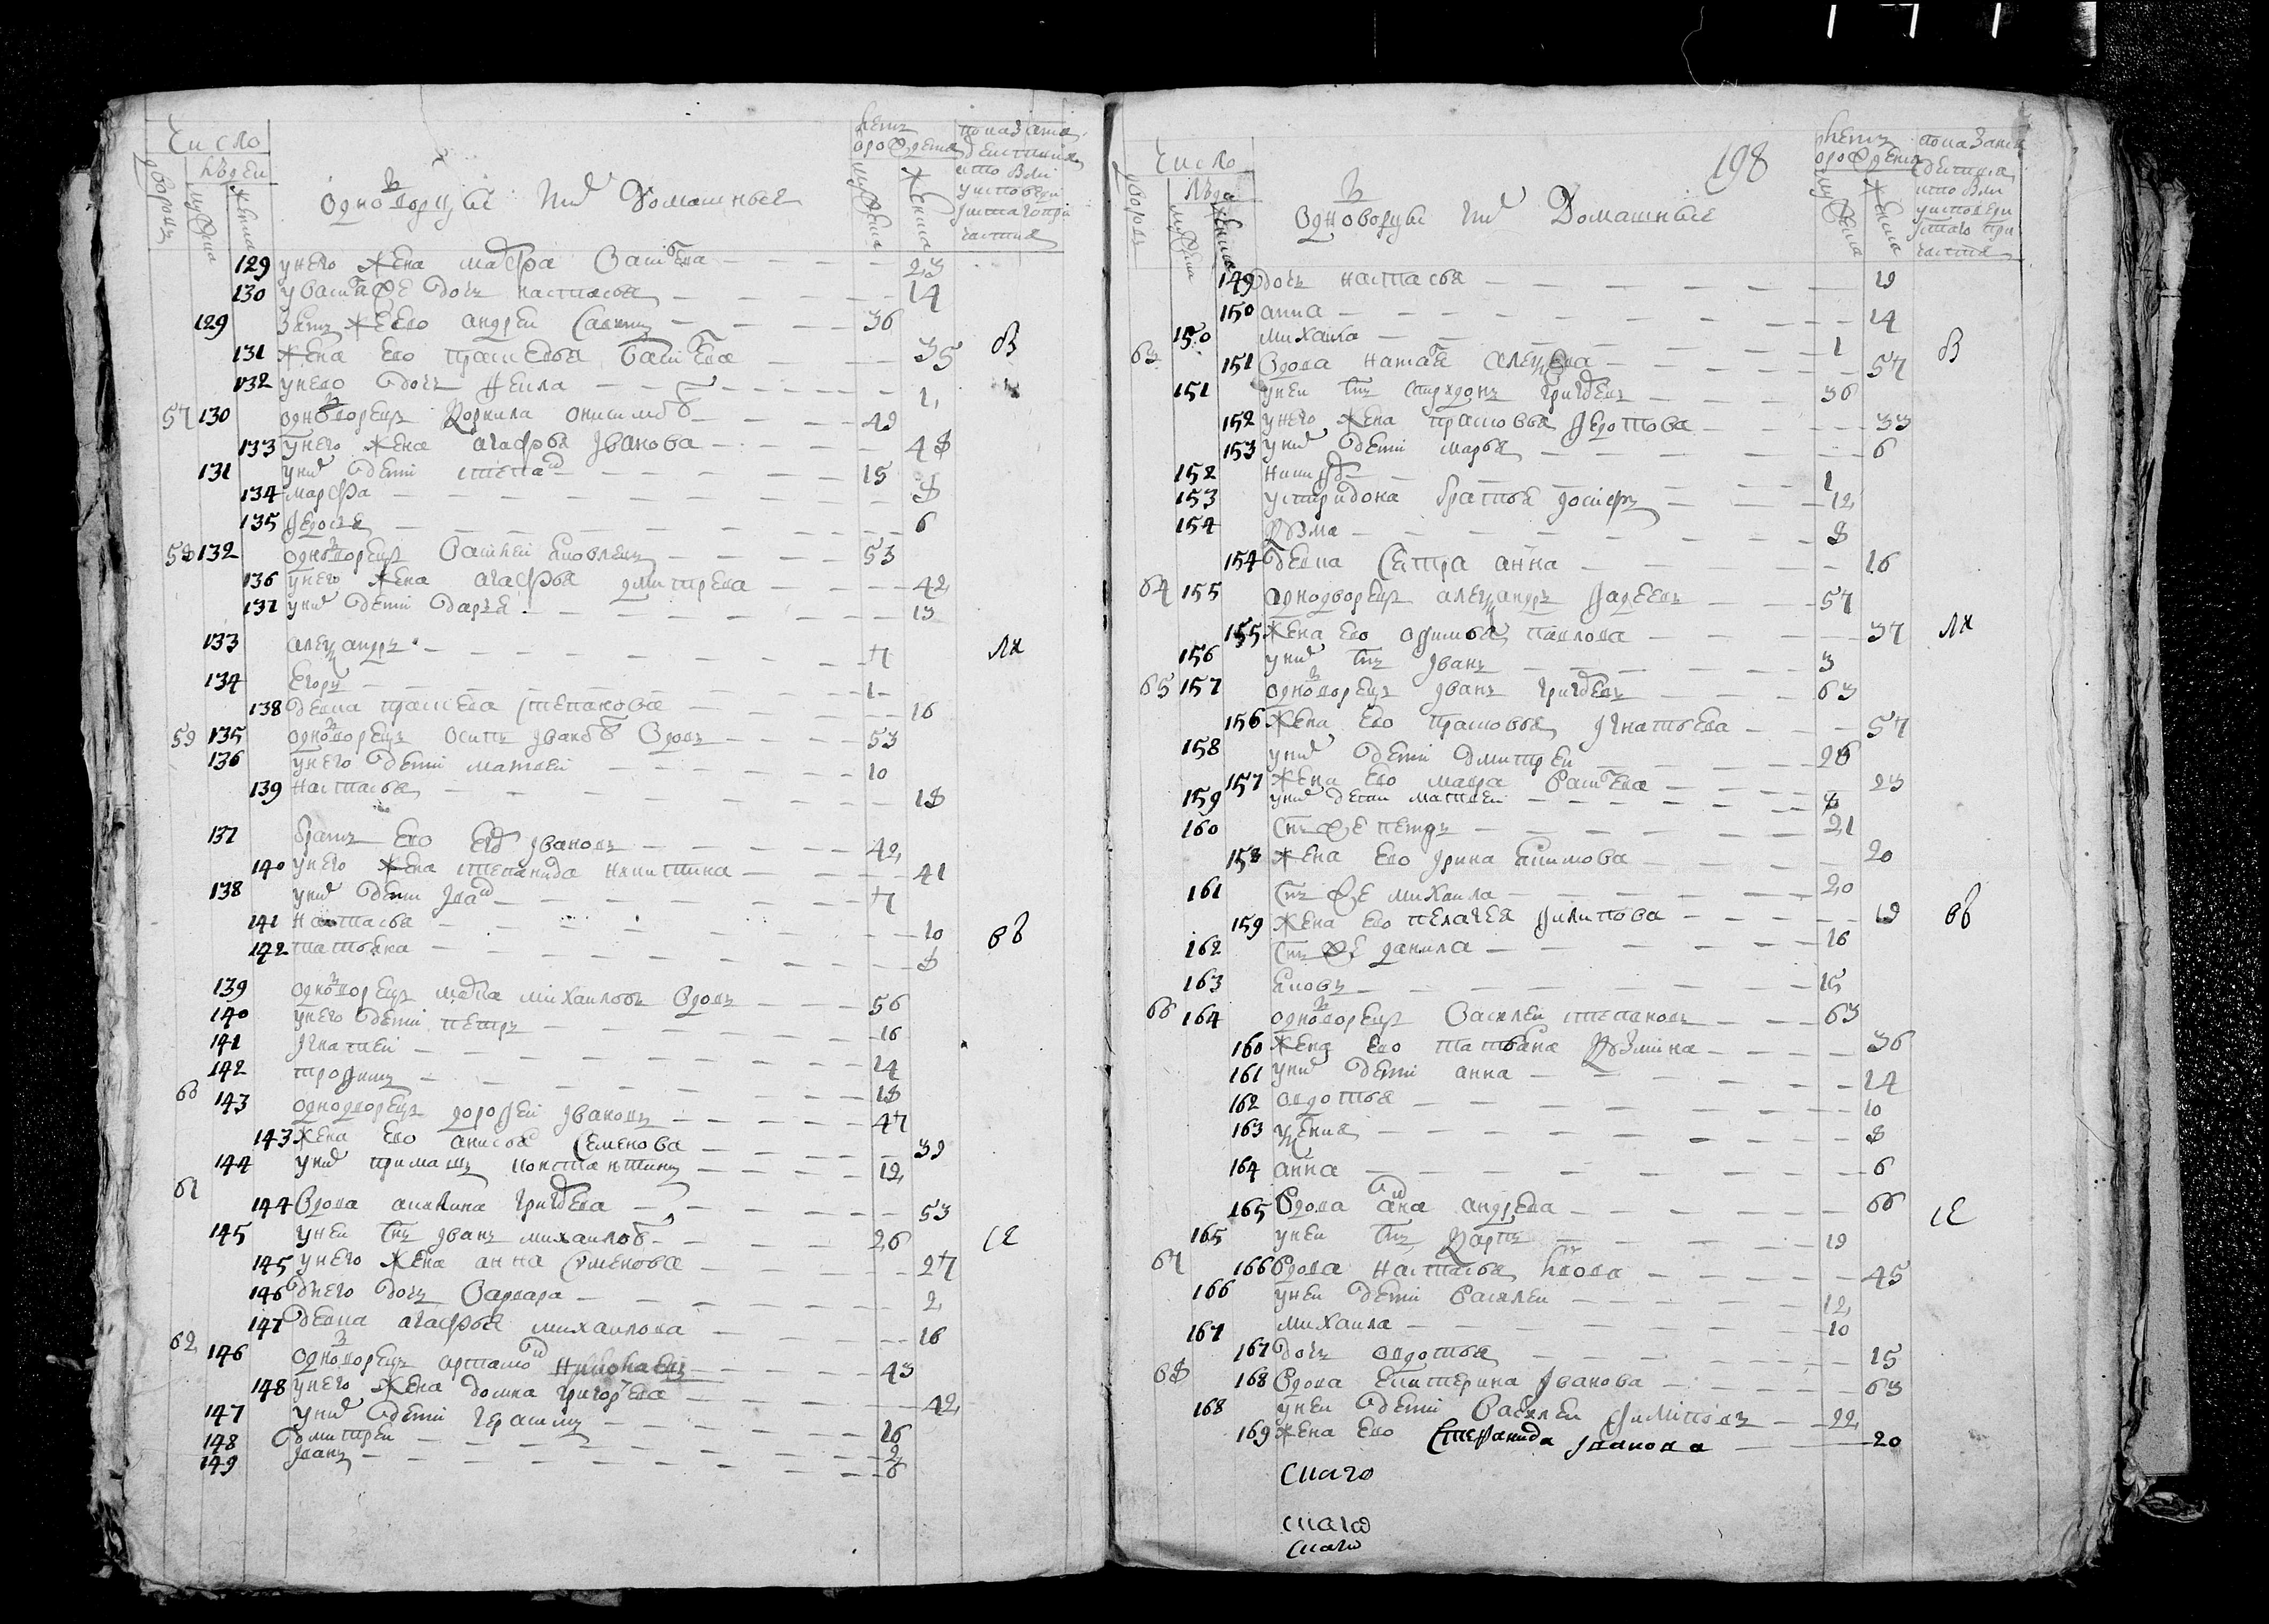 Число
дворовъ
людей
мужеска
женска
однодворцы и их домашныя
летъ от рождения
мужеска
женска
показание действия кто был у исповеди и святого причастия
129 у него жена марфа Васильева 23
130 у Василья же дочь настасья 14
129 зять ево андреи Савин 36
131 жена ево прасковья Васильева 35
132 у него дочь Fекла 1
57 130 однодворецъ Корнила онисимов 49
133 у него жена агафья Iванова 48
131 у них дети степан 15
134 марфа 8
135 Fедосья 6
58 132 однодворецъ Василей яковлевъ 53
136 у него жена агафья дмитрева 42
137 у них дети дарья 13
133 александръ 7
134 Егоръ 1
138 девка прасковья степанова 16
59 135 однодворецъ осипъ Iванов вдовъ 53
136 у него дети матвеи 10
139 настасья 18
137 братъ ево Iвановъ 42
140 у него жена степанида никитина 41
138 у них дети Iван 7
141 настасья 10
142 татьяна 8
139 однодворецъ михаиловъ вдовъ 56
140 у него дети петръ 16
141 Iгнатеи 14
142 троFимъ 18
60 143 однодворецъ дороFеи Iвановъ 47
143 жена ево анисья Семенова 39
144 у них примакъ константинъ 12
61 144 вдова акилина григорева 53
145 у неи сын Iванъ михаилов 26
145 у него жена анна Семенова 27
146 у него дочь Варвара 2
147 девка агафья михаилова 16
62 146 однодворецъ артамон николаевъ 43
148 у него жена домна григорева 42
147 у них дети герасимъ 16
148 дмитреи 2
149 Iванъ 6
198
Число
дворовъ
люде
мужеска
женска
однодворцы и их Домашныя
летъ от рождения
мужеска
женска
показание действия кто был у исповеди и святого причастия
149 дочь настасья 19
150 анна 14
150 михаила 1
63 151 Вдова наталья алексеева 57
151 у неи сынъ спиридонъ григоревъ 36
152 у него жена прасковья Fедотова 33
153 у них дети марья 6
152 никиFор 1
153 у спиридона братья 12
154 Кузма 8
154 девка Сестра анна 16
64 155 однодворецъ александръ Fадеевъ 57
155 жена ево аFимья павлова 37
156 у них сынъ Iванъ 3
65 157 однодворецъ Iванъ григоревъ 63
156 жена ево прасковья Iгнатьева 57
158 у них дети дмитреи 26
157 жена ево мавра Васильева 23
159 у них дети матвеи 8
160 Сынъ же петръ 21
158 жена ево Iрина Екимова 20
161 Сынъ же михаила 20
159 жена ево пелагея Fилипова 19
162 Сынъ же данила 16
163 яковъ 15
66 164 однодворецъ Василеи степановъ 63
160 жена ево татьяна Кузмина 36
161 у них дети анна 14
162 авдотья 10
163 ксения 8
164 анна 6
165 Вдова анна андреева 66
165 у неи сынъ Карпъ 19
67 166 Вдова настасья 45
166 у неи дети Василеи 12
167 михаила 10
167 дочь авдотья 15
68 168 Вдова екатерина Iванова 63
168 у неи дети Василеи Fилиповъ 22
169 жена ево Степанида Iванова 20